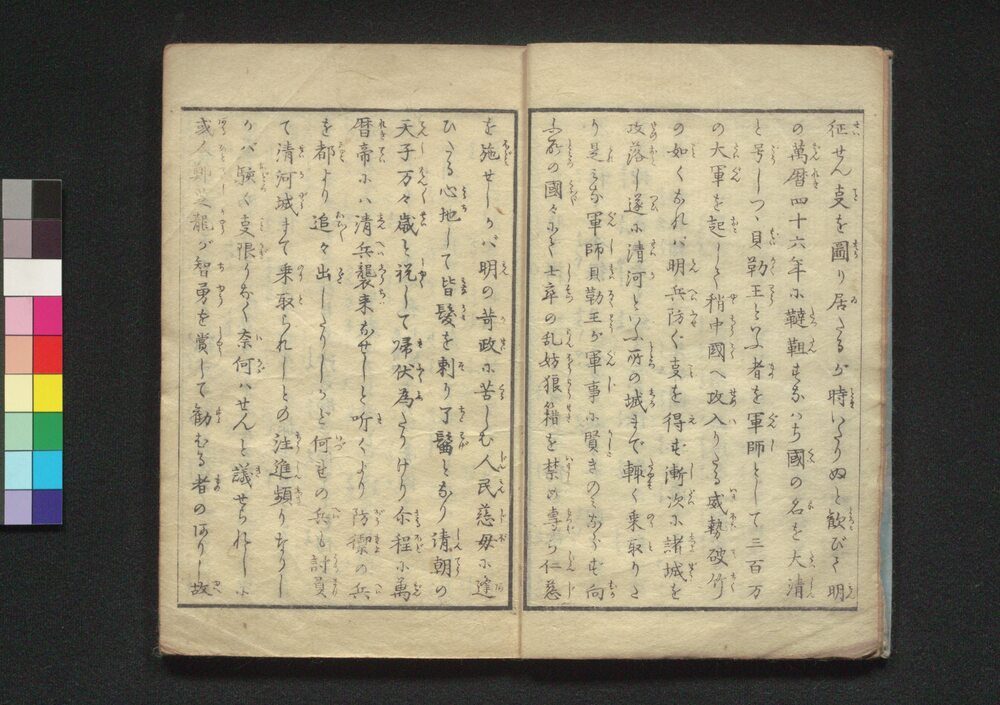 征せん㕝を圖り居たるが時いたりぬと歓びさ明
の萬暦四十六年に韃靼すなはち國の名を大清
と号しつゝ貝勒王といふ者を軍師として三百万
の大軍を起しさ稍中國へ攻入りたる威勢破竹
の如くなれバ明兵防ぐ㕝を得ず漸次に諸城を
攻落し遂に清河といふ所の城まで輙く乗取りさ
り是みな軍師貝勒王が軍事に賢きのミならず向
ふ所の國々にて士卒の乱妨狼籍を禁め専ら仁慈
を施せしかバ明の苛政に苦しむ人民慈母に逢
ひたる心地して皆髪を剃り了髷となり清朝の
天子万々歳と祝して帰伏為たりけり尓程に萬
暦帝にハ清兵襲来なせしと听くより防禦の兵
を都より追々出したりしかど何れの兵も討負
て清河城まで乗取られしとの注進頻りなりし
かバ験く㕝限りなく奈何ハせんと議せられしに
或人鄭芝龍が智勇を賞して勧むる者のありし故